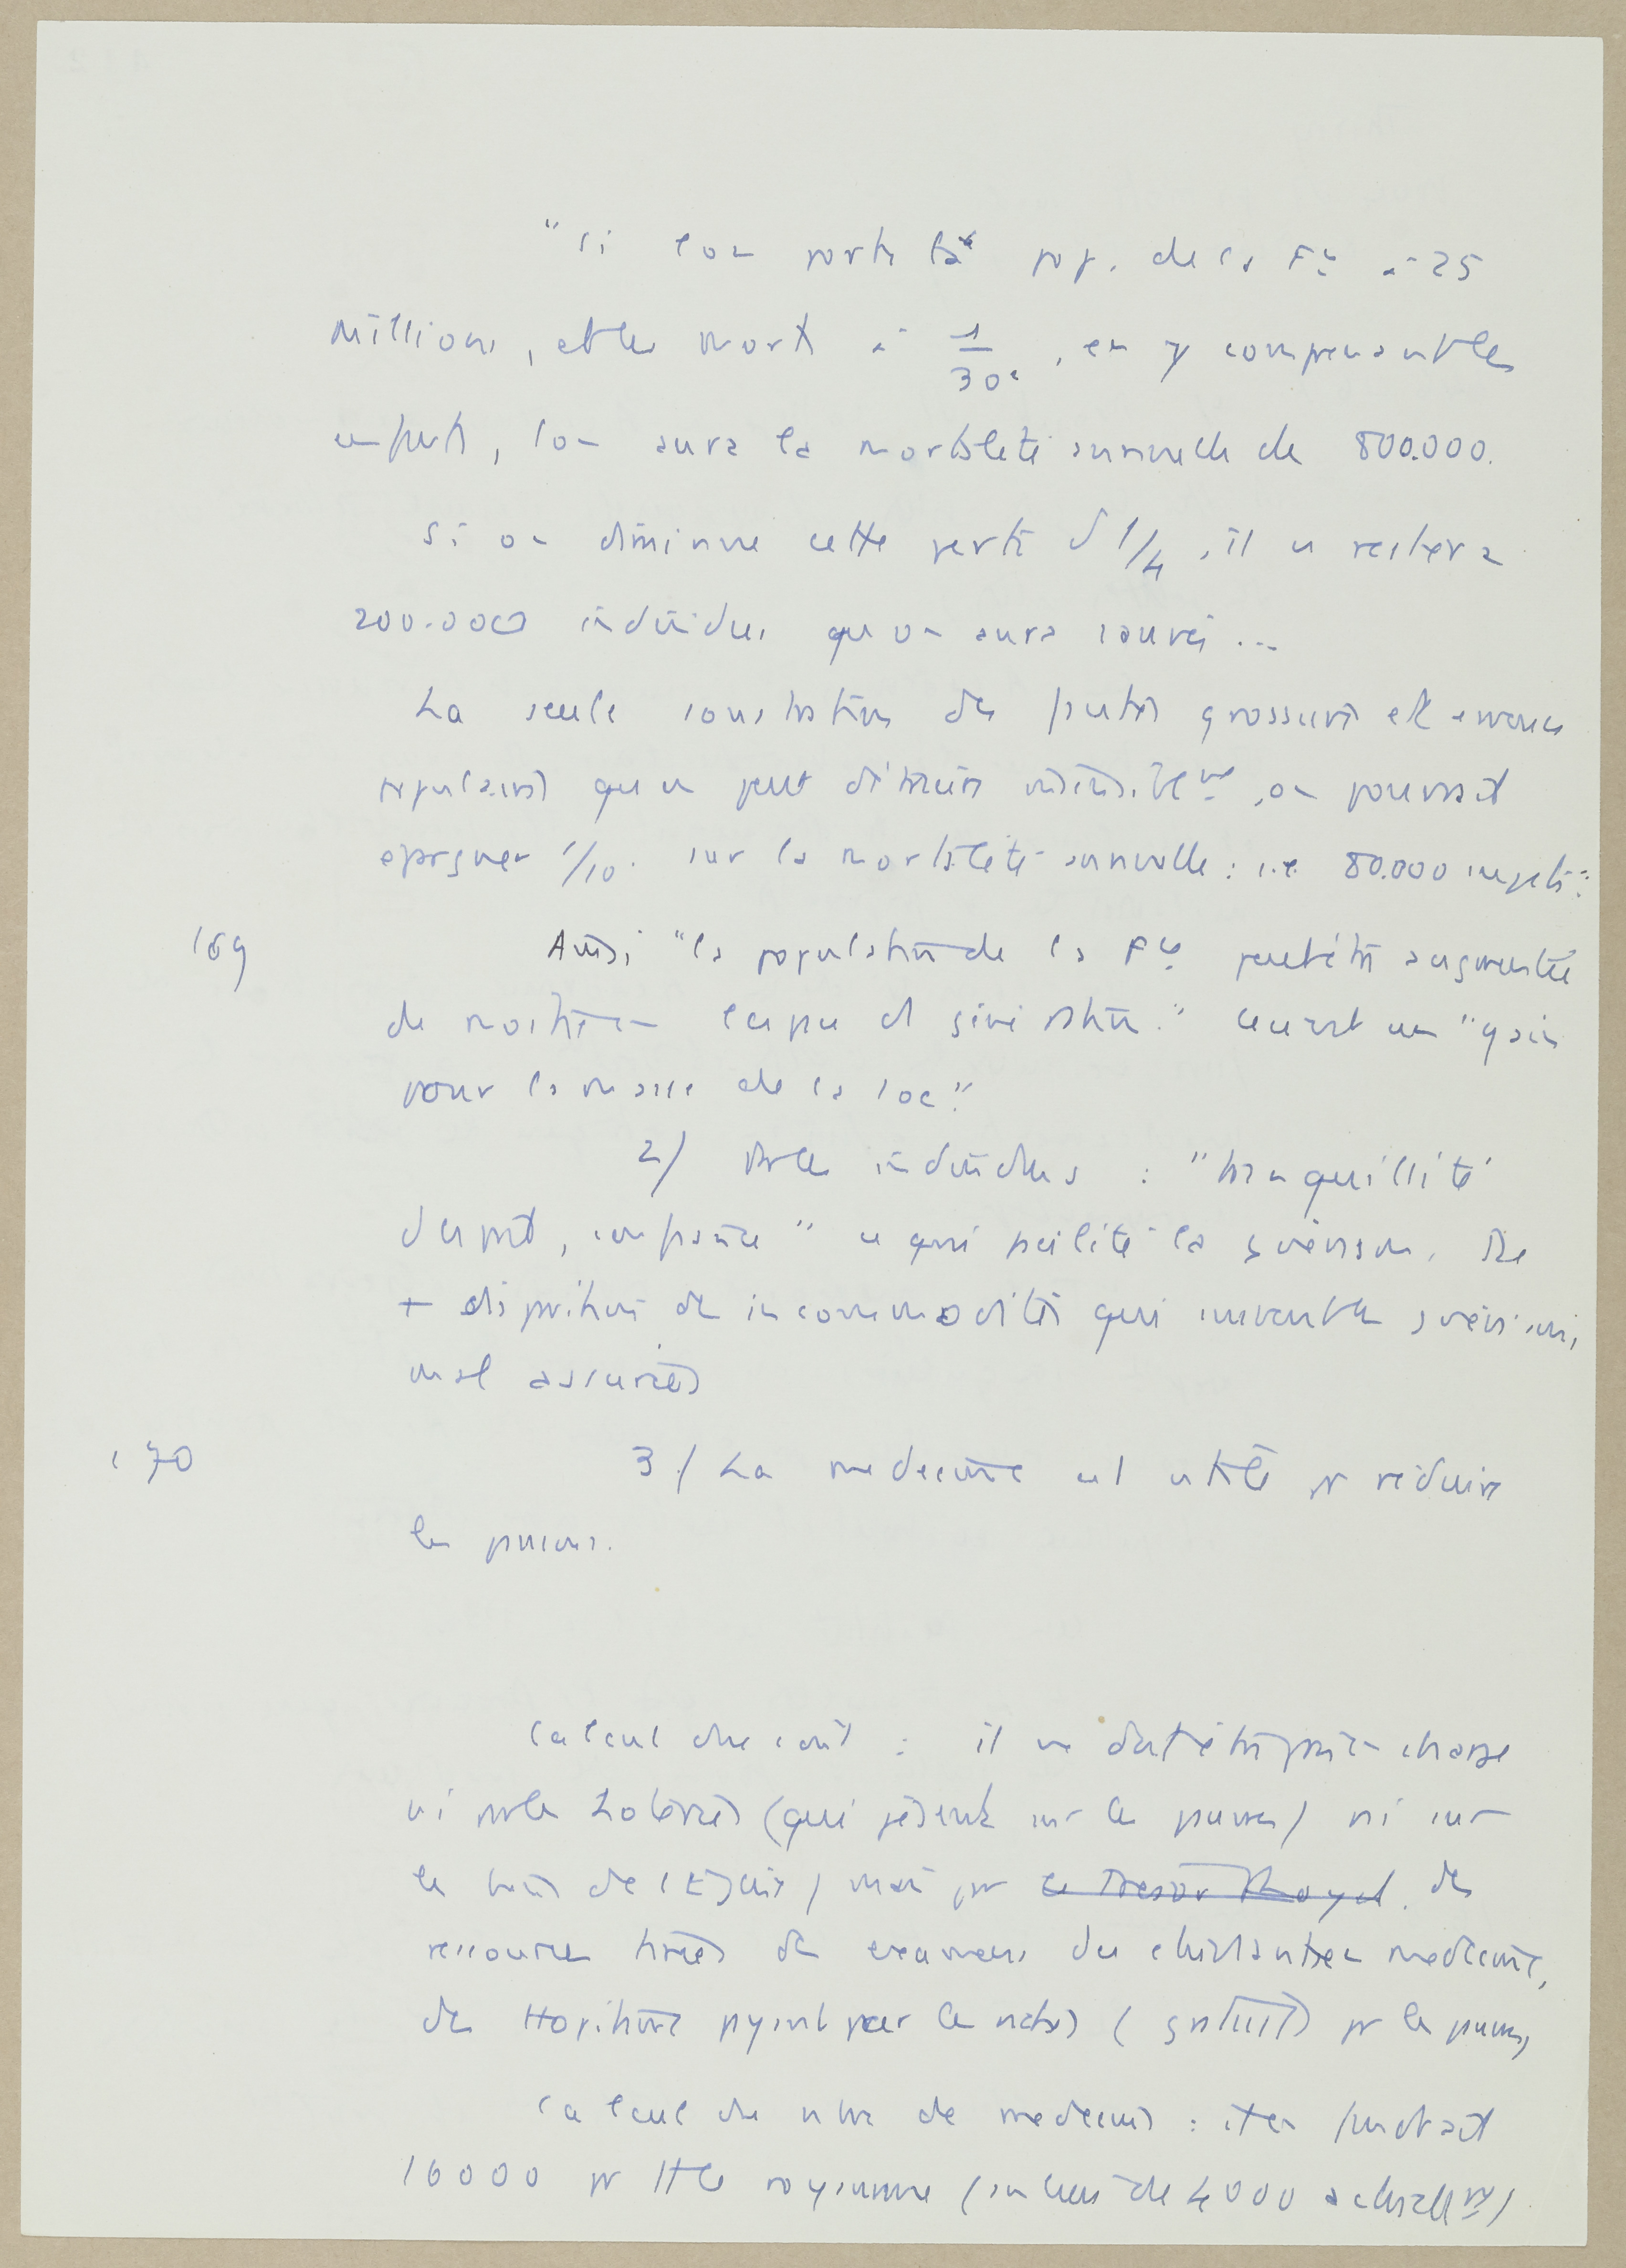 "Si l'on porte la pop. de la Fce à 25
millions, et les morts à 1/30e, en y comprenant les
enfants, l'on aura la mortalité annuelle de 800.000.
Si on diminue cette perte d'1/4, il en restera
200.000 individus qu'on aura sauvés ...
La seule constatation des fautes grossières et erreurs
populaires qu'on peut détruire , on pourrait
épargner 1/10. sur la mortalité annuelle : i.e. 80.000 sujets".
169 Ainsi "la population de la Fce peut être augmentée
de moitié en l'espace d'1 génération." Ce serait un "gain
pour la masse de la soc".
2/ Pr les individus : "tranquillité
d'esprit, confiance" ce qui facilite la guérison. De
+ disparition des incommodités qui suivent les guérisons
mal assurées
170 3/ La médecine est utile pr réduire
les
Calcul du coût : il ne doit être pris en charge
ni par les Loteries (qui pèsent sur les pauvres) ni sur
les biens de l'Eglise, mais par le Trésor Royal. des
ressources tirées des examens des en médecine,
des Hopitaux payants pour les (gratuits) pr les pauvres,
Calcul du nbre de médecins : il en faudrait
16000 pr tt le royaume (au lieu de 4000 actuellemt)